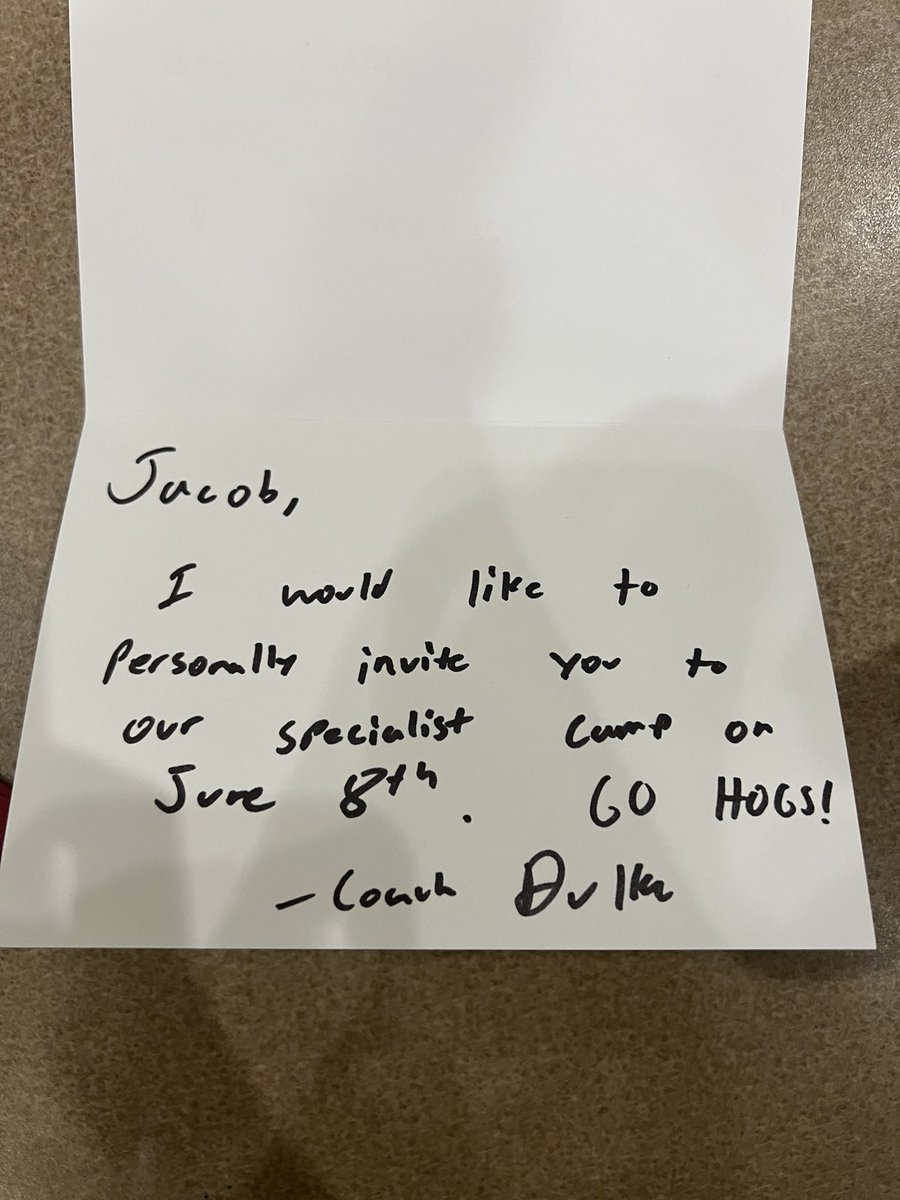 Jacob,
I would like to
personally invite you to
our specialist camp on
June 8th. GO HOGS!
- Coach